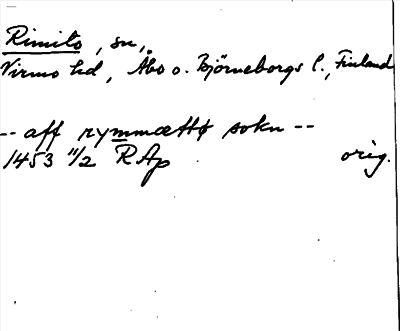 Rimito, sn,
Virmo hd, Åbo o. Björneborgs l., Finland
-- aff rymmættø sokn --
1453 11/2 RAp orig.